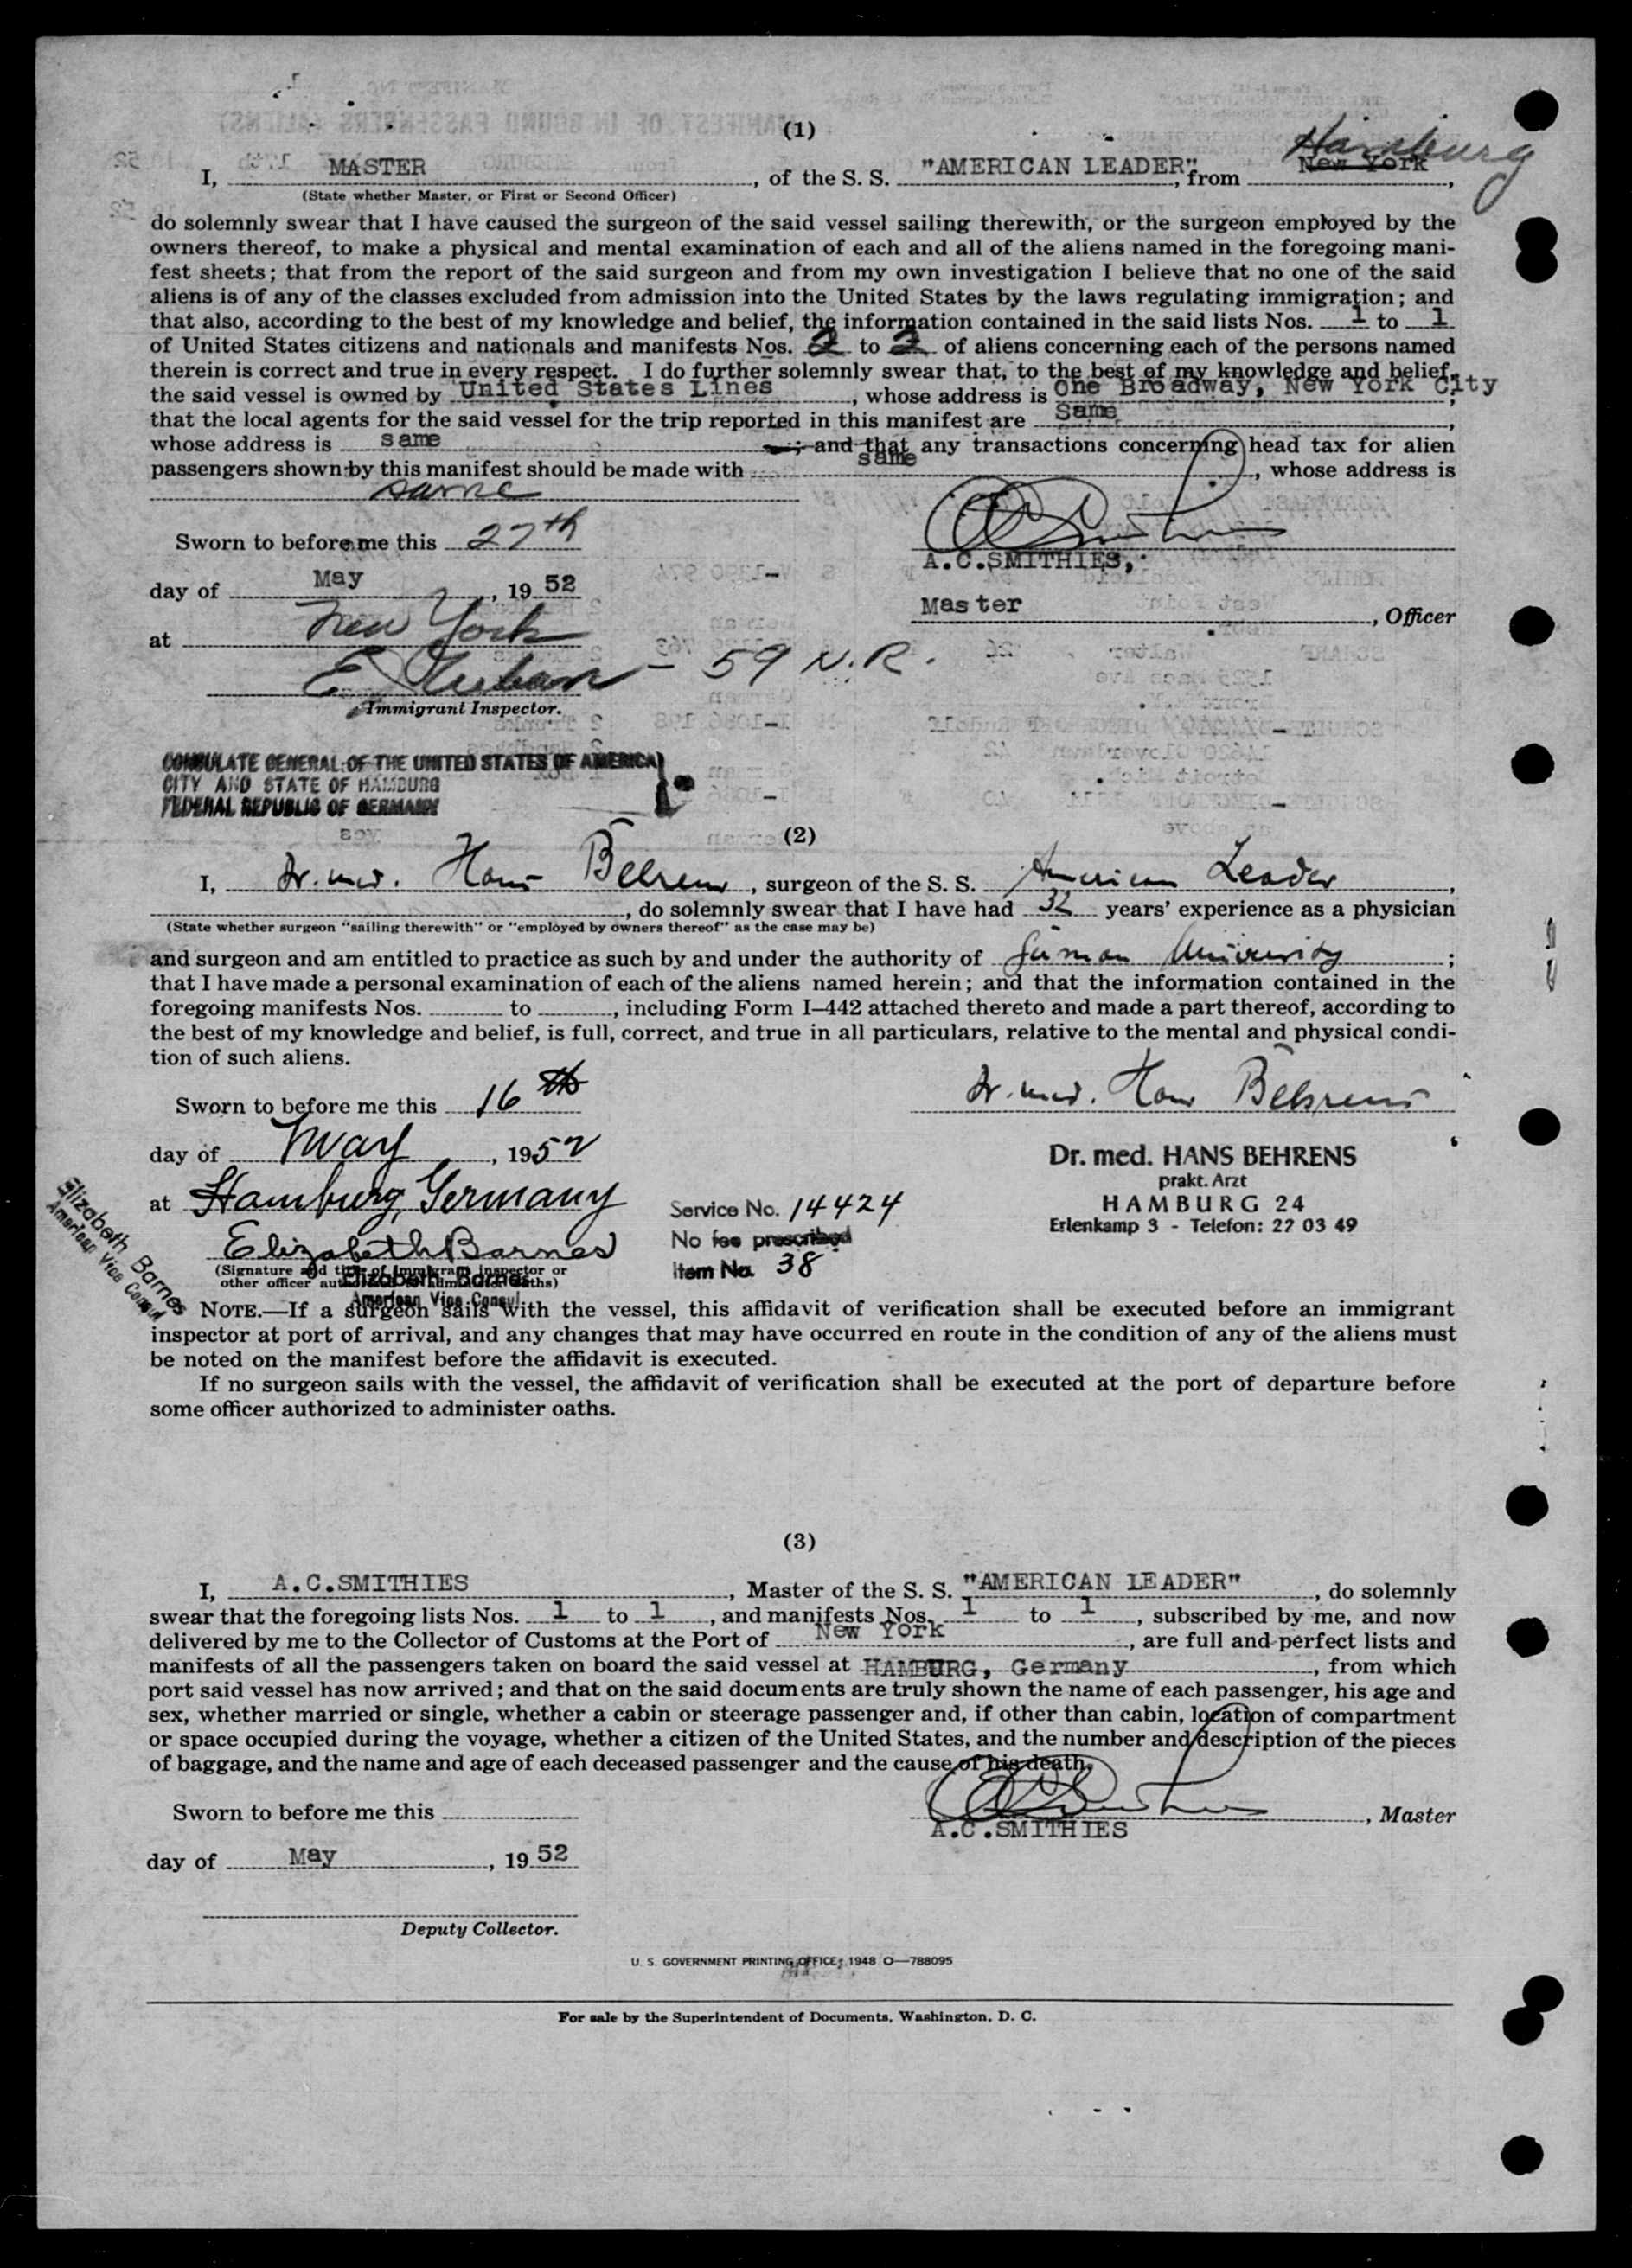 (1)
I, MASTER, of the S. S. "AMERICAN LEADER", from New York Hamburg,
(State whether Master, or First or Second Officer)
do solemnly swear that I have caused the surgeon of the said vessel sailing therewith, or the surgeon employed by the
owners thereof, to make a physical and mental examination of each and all of the aliens named in the foregoing mani-
fest sheets; that from the report of the said surgeon and from my own investigation I believe that no one of the said
aliens is of any of the classes excluded from admission into the United States by the laws regulating immigration; and
that also, according to the best of my knowledge and belief, the information contained in the said lists Nos. 1 to 1
of United States citizens and nationals and manifests Nos. 2 to 2 of aliens concerning each of the persons named
therein is correct and true in every respect. I do further solemnly swear that, to the best of my knowledge and belief,
the said vessel is owned by United States Lines, whose address is One Broadway, New York City;
that the local agents for the said vessel for the trip reported in this manifest are Same,
whose address is same; and that any transactions concerning head tax for alien
passengers shown by this manifest should be made with same, whose address is
same
Sworn to before me this 27th
A.C.SMITHIES,
day of May, 19 52
Master, Officer
at New York
E - 59 N.R.
Immigrant Inspector.
CONSULATE GENERAL OF THE UNITED STATES OF AMERICA
CITY AND STATE OF HAMBURG
FEDERAL REPUBLIC OF GERMANY
(2)
I, Dr. med. Hans Behrens, surgeon of the S. S. American Leader,
, do solemnly swear that I have had 32 years' experience as a physician
(State whether surgeon "sailing therewith" or "employed by owners thereof" as the case may be)
and surgeon and am entitled to practice as such by and under the authority of German University;
that I have made a personal examination of each of the aliens named herein; and that the information contained in the
foregoing manifests Nos. to , including Form I–442 attached thereto and made a part thereof, according to
the best of my knowledge and belief, is full, correct, and true in all particulars, relative to the mental and physical condi-
tion of such aliens.
Sworn to before me this 16th
Dr. med. Hans Behrens
day of May, 1952
Dr. med. HANS BEHRENS
prakt. Arzt
HAMBURG 24
Erlenkamp 3 - Telefon: 22 03 49
at Hamburg, Germany
Service No. 14424
Elizabeth Barnes
No fee prescribed
(Signature and title of immigrant inspector or
other officer authorized to administer oaths)
Item No. 38
Elizabeth Barnes
American Vice Consul
Elizabeth Barnes
American Vice Consul
NOTE.—If a surgeon sails with the vessel, this affidavit of verification shall be executed before an immigrant
inspector at port of arrival, and any changes that may have occurred en route in the condition of any of the aliens must
be noted on the manifest before the affidavit is executed.
If no surgeon sails with the vessel, the affidavit of verification shall be executed at the port of departure before
some officer authorized to administer oaths.
(3)
I, A.C.SMITHIES, Master of the S. S. "AMERICAN LEADER", do solemnly
swear that the foregoing lists Nos. 1 to 1, and manifests Nos. 1 to 1, subscribed by me, and now
delivered by me to the Collector of Customs at the Port of New York, are full and perfect lists and
manifests of all the passengers taken on board the said vessel at HAMBURG, Germany, from which
port said vessel has now arrived; and that on the said documents are truly shown the name of each passenger, his age and
sex, whether married or single, whether a cabin or steerage passenger and, if other than cabin, location of compartment
or space occupied during the voyage, whether a citizen of the United States, and the number and description of the pieces
of baggage, and the name and age of each deceased passenger and the cause of his death.
Sworn to before me this
, Master
A.C.SMITHIES
day of May, 19 52
Deputy Collector.
U. S. GOVERNMENT PRINTING OFFICE: 1948 O—788095
For sale by the Superintendent of Documents, Washington, D. C.